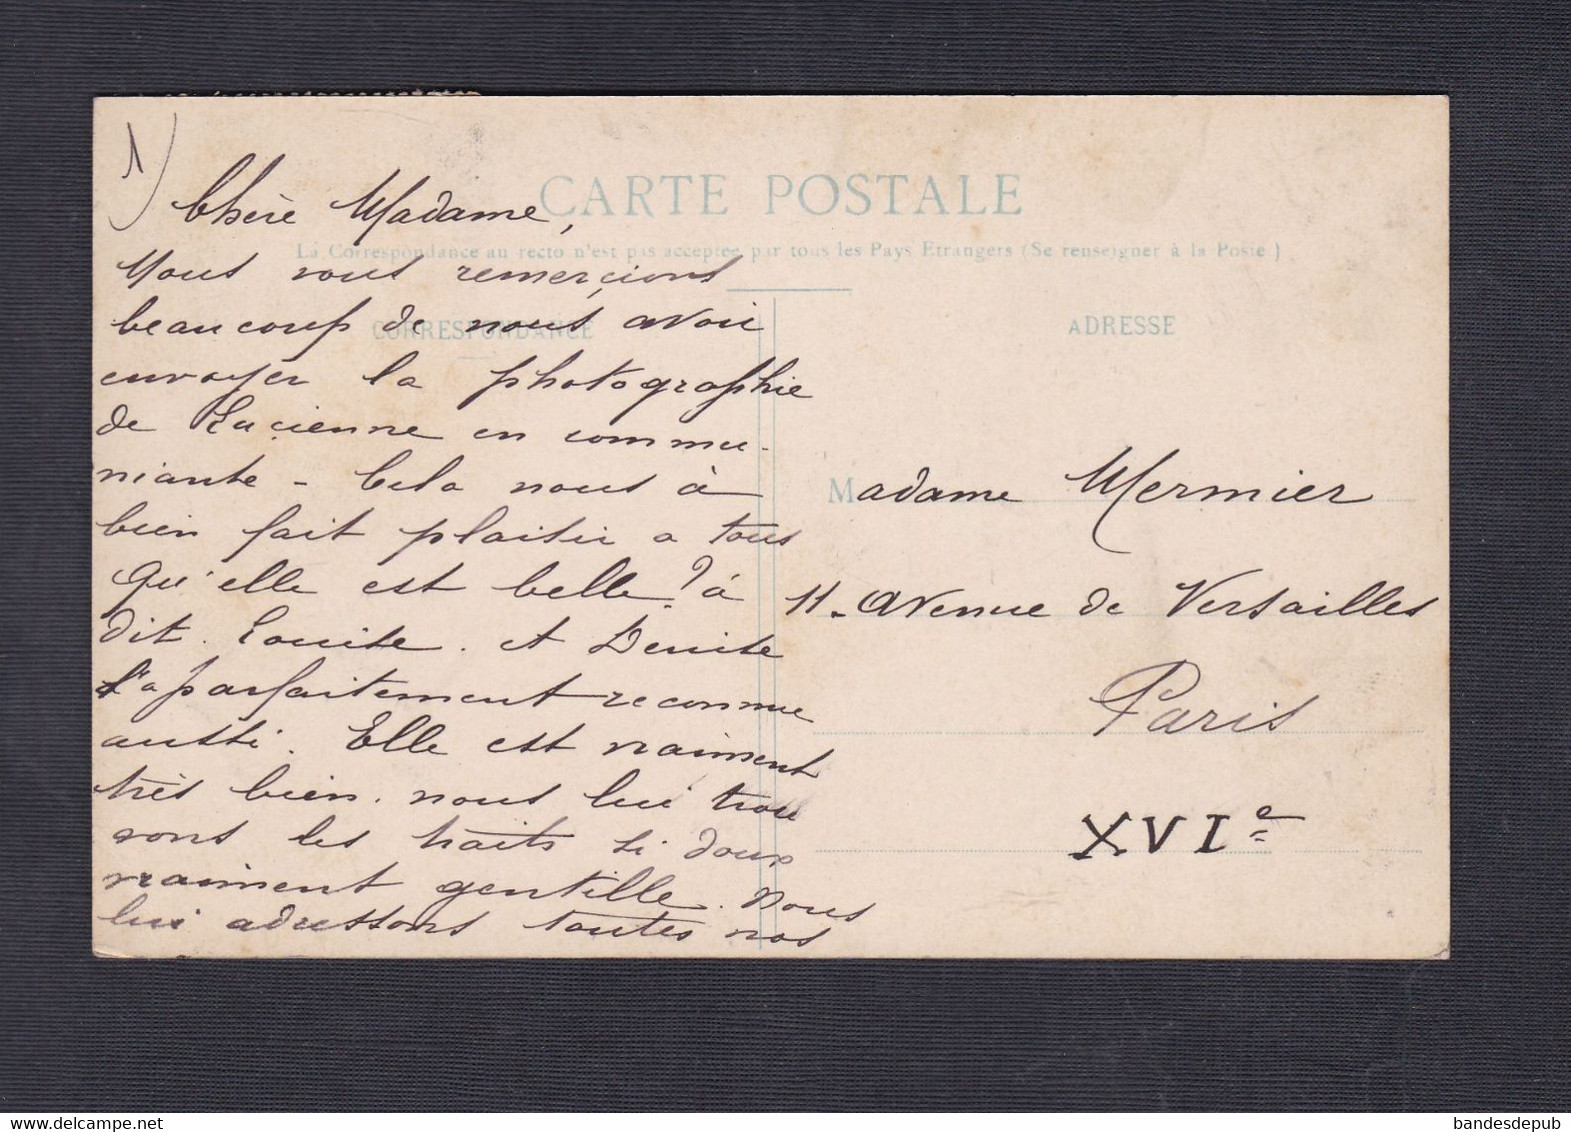 1)
Chère Madame,
CARTE POSTALE
La Correspondance au recto n'est pas acceptée par tous les Pays Etrangers (Se renseigner à la Poste)
Nous vous remerçions
beaucoup de nous avoir
CORRESPONDANCE
envoyer la photographie
de Lucienne en commu-
niante - Cela nous à
bien fait plaisir a tous
Qu'elle est belle? à
dit Louise. et Denise
l'a parfaitement reconnue
aussi. Elle est vraiment
très bien. nous lui trou
vons les traits si doux
vraiment gentille. Nous
lui adressons toutes nos
ADRESSE
Madame Mermier
11. Avenue de Versailles
Paris
XVIe
bandesdepub